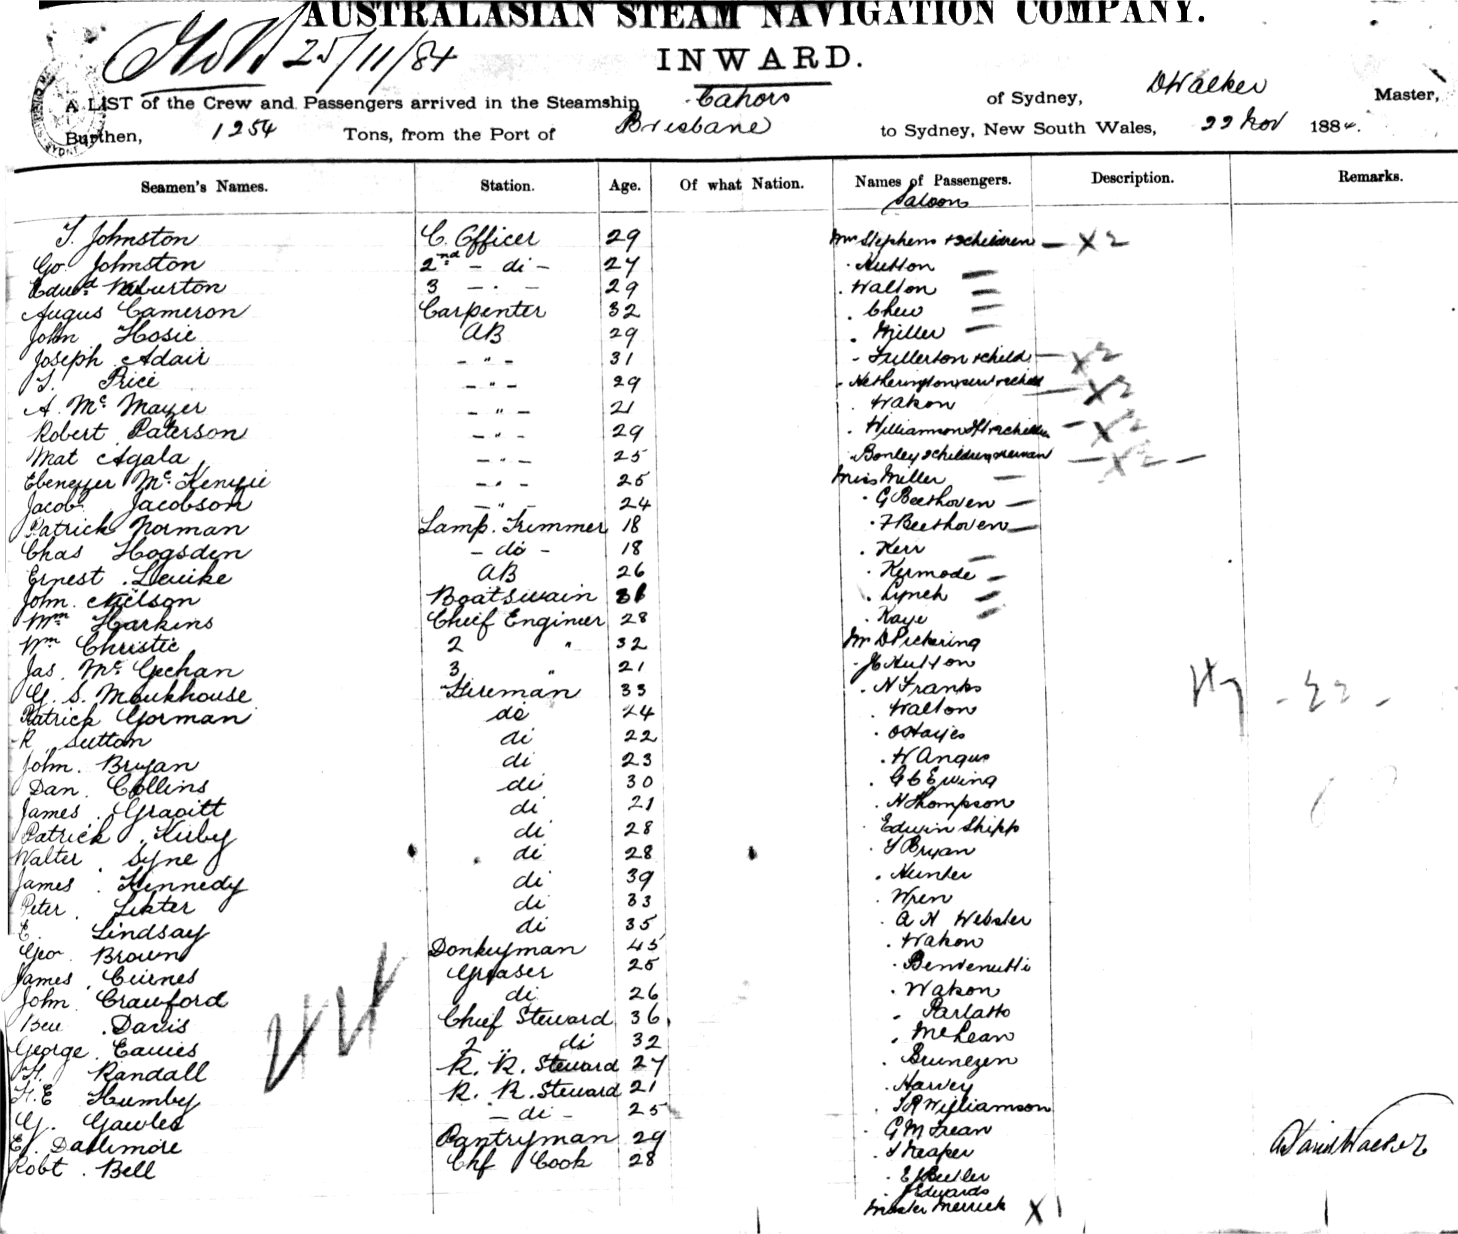 AUSTRALASIAN STEAM NAVIGATION COMPANY.
25/11/84
INWARD.
A LIST of the Crew and Passengers arrived in the Steamship Cahors of Sydney, D Walker Master,
Burthen, 1254 Tons, from the Port of Brisbane to Sydney, New South Wales, 22 Nov 1884.
Seamen's Names. Station. Age. Of what Nation. Names of Passengers. Description. Remarks.
Saloon
T. Johnston C. Officer 29 Mrs Stephens + 2 children — X 2
Go. Johnston 2nd - di - 27 Hutton
Edwd Warburton 3 - . - 29 Walton
Augus Cameron Carpenter 32 Chew
John Hosie AB 29 Miller
Joseph Adair - " - 31 Fullerton + child — X 2
T. Price - " - 29 Netherington + child — X 2
A. Mc Mayer - " - 21 Watson
Robert Paterson - " - 29 Williamson — X 2
Mat Agala - " - 25 Bonley 2 children — X 2 —
Ebenezer McKenzie - " - 25 Miss Miller
Jacob Jacobson - " - 24 G Beethoven
Patrick Norman Lamp. Trimmer 18 F Beethoven
Chas Hogsden - do - 18 Kerr
Ernest Leuike AB 26 Kermode
John Neilson Boatswain 31 Lynch
Wm Harkins Chief Engineer 28 Kaye
Wm Christie 2 " 32 Mr D Pickering
Jas. Mc Gechan 3 " 21 Jc Hutton
G. S. Moukhouse Fireman 33 N Franks
Patrick Gorman do 24 Walton
R. Sutton di 22 O Hayes
John. Bryan di 23 W Angus
Dan. Collins di 30 G C Ewing
James Gragitt di 21 N Thompson
Patrick Kirby di 28 Edwin Shipp
Walter Syne di 28 T Bryan
James Kennedy di 39 Hunter
Peter Lister di 33 Wren
E. Lindsay di 35 A N Webster
Geo. Brown Donkeyman 45 Watson
James Cuines Greaser 25 Benvenutti
John Crawford di 26 Watson
Ben Davis Chief Steward 36 Parlatto
George Eavies 2 " di 32 McLean
H. Randall R. R. Steward 27 Brunezen
H. E Humby R. R. Steward 21 Harvey
G. Gawled - di - 25 T R Williamson
E. Dallimore Pantryman 29 G M Frean
Robt. Bell Chf Cook 28 T Neaper
E J Beetler
J Edwards
Master Merrick X 1
David Walker